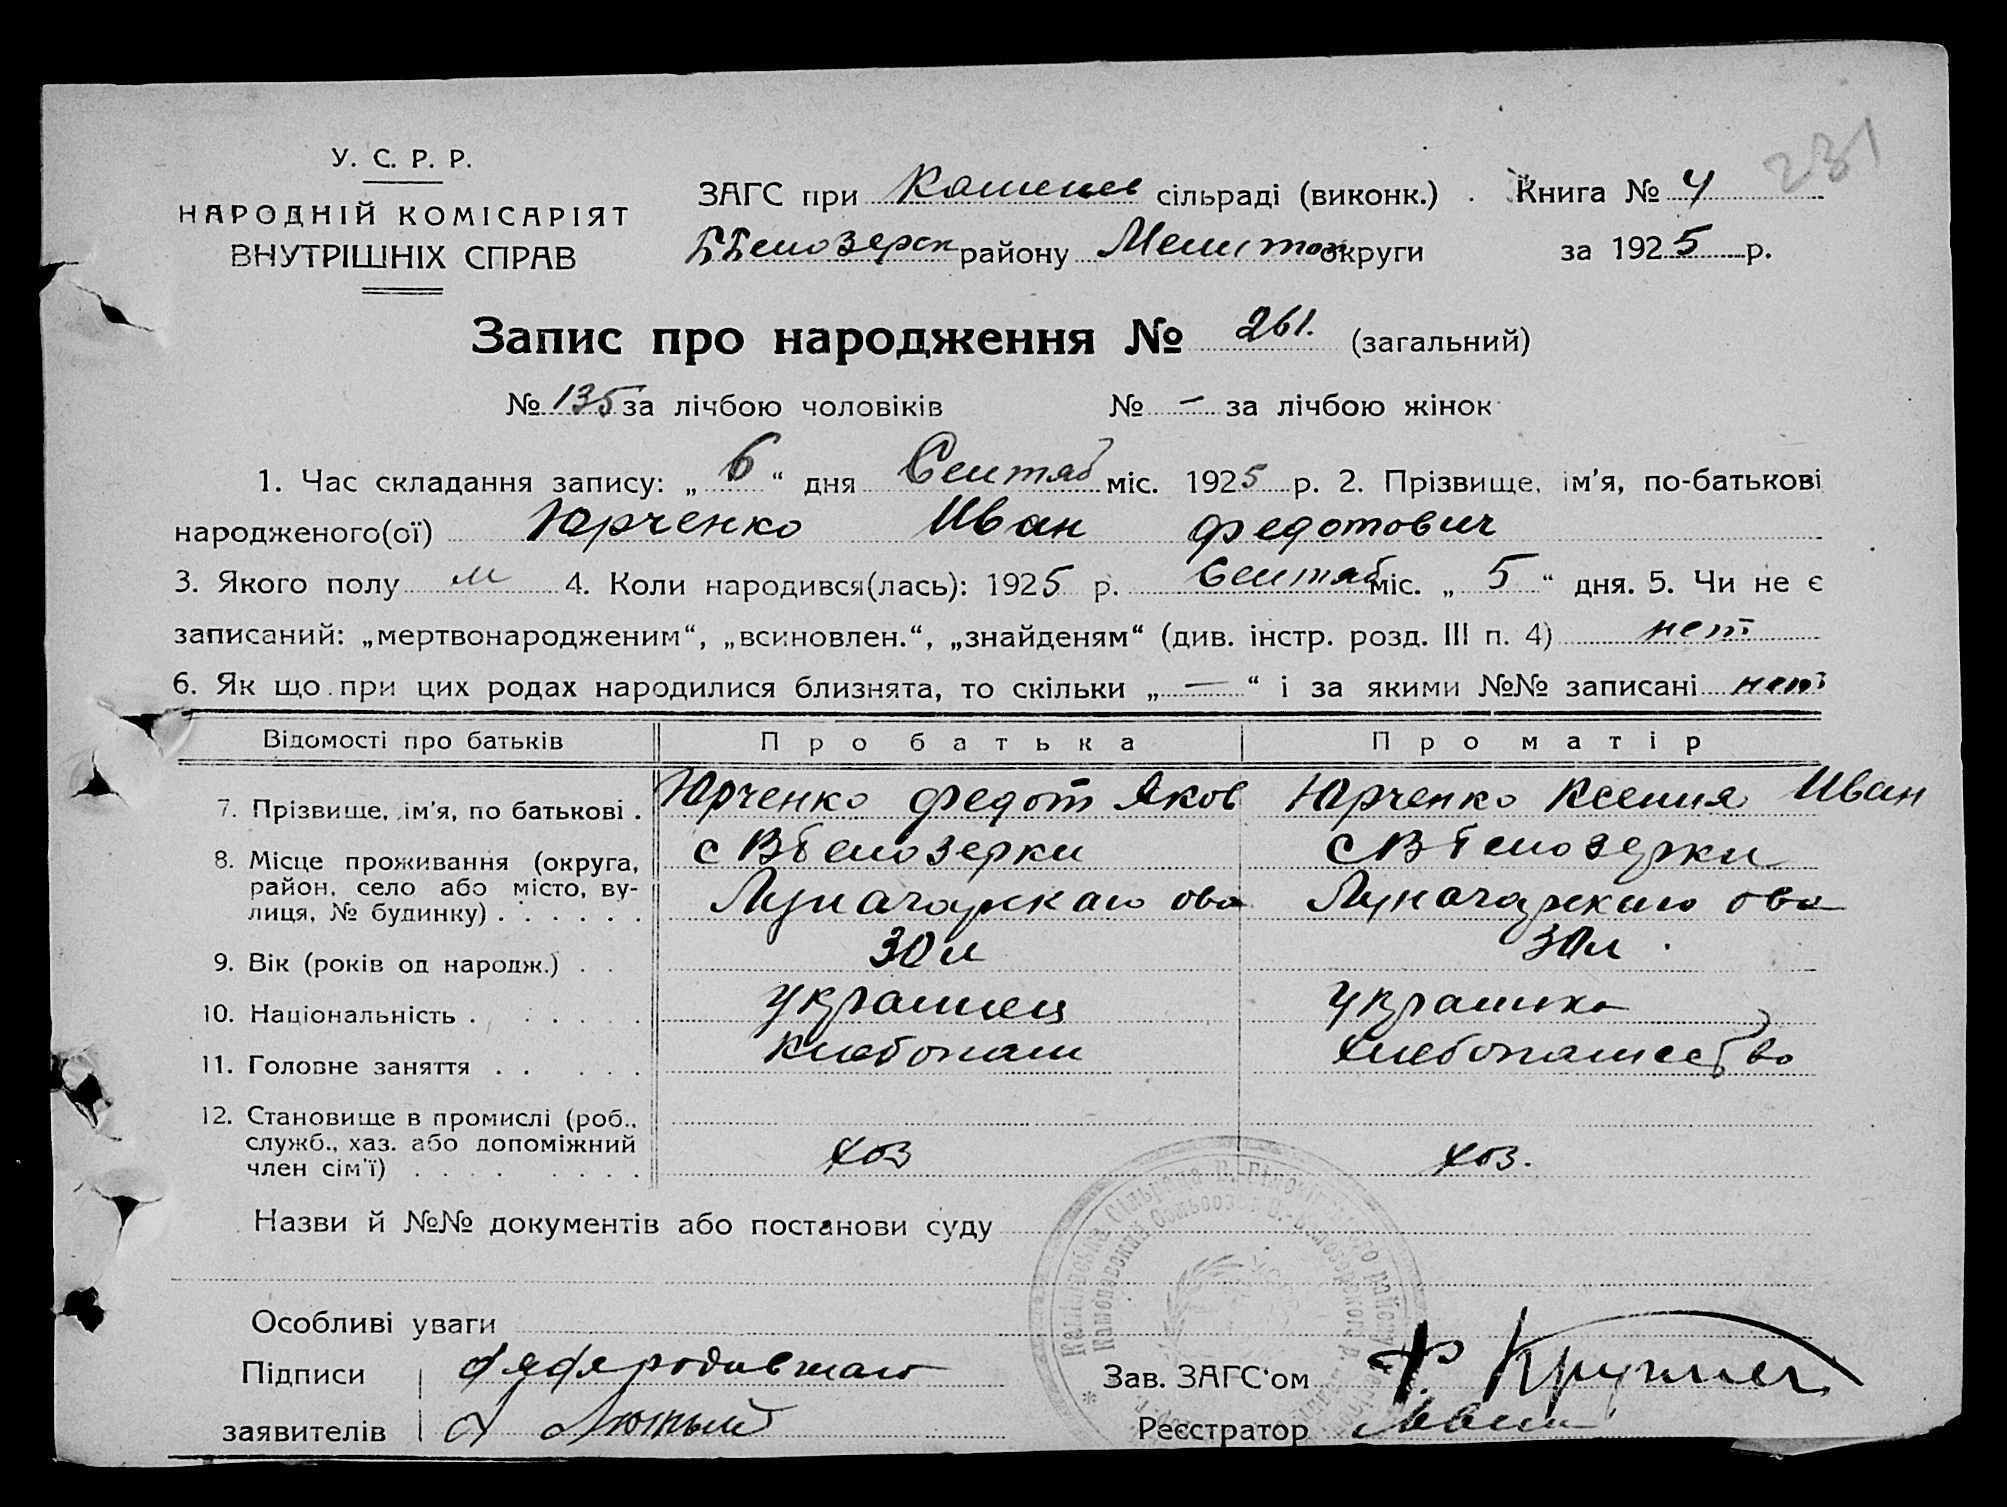 231
У. С. Р. Р.
НАРОДНІЙ КОМІСАРІЯТ
ВНУТРІШНІХ СПРАВ
ЗАГС при сільраді (виконк.) Книга № 4
ББелозерск району Мелитоп округи за 1925 р.
Запис про народження № 261. (загальний)
№ 135 за лічбою чоловіків № — за лічбою жінок
1. Час складання запису: „ 6 “ дня Сентяб міс. 1925 р. 2. Прізвище, ім'я, по-батькові
народженого(ої) Юрченко Иван Федотович
3. Якого полу м 4. Коли народився(лась): 1925 р. Сентяб міс. „ 5 “ дня. 5. Чи не є
записаний: „мертвонародженим“, „всиновлен.“, „знайденям“ (див. інстр. розд. III п. 4) нет
6. Як що при цих родах народилися близнята, то скільки „ — “ і за якими №№ записані нет
Відомості про батьків Про батька Про матір
7. Прізвище, ім'я, по батькові . Юрченко Федот Яков Юрченко Ксения Иван
8. Місце проживання (округа, с Вбелозерки с Вбелозерки
район, село або місто, ву-
лиця, № будинку) . . . . . . Луначарскаго ова Луначарскаго ова
9. Вік (років од народж.) . . 30 л 30 л
10. Національність . . . . . . украинец украинка
11. Головне заняття . . . . . хлебопаш хлебопашество
12. Становище в промислі (роб.,
служб., хаз. або допоміжний
член сім'ї) . . . . . . . хоз хоз.
Назви й №№ документів або постанови суду
Особливі уваги
Підписи дядя родившаго Зав. ЗАГС'ом
заявителів Лютый Реєстратор